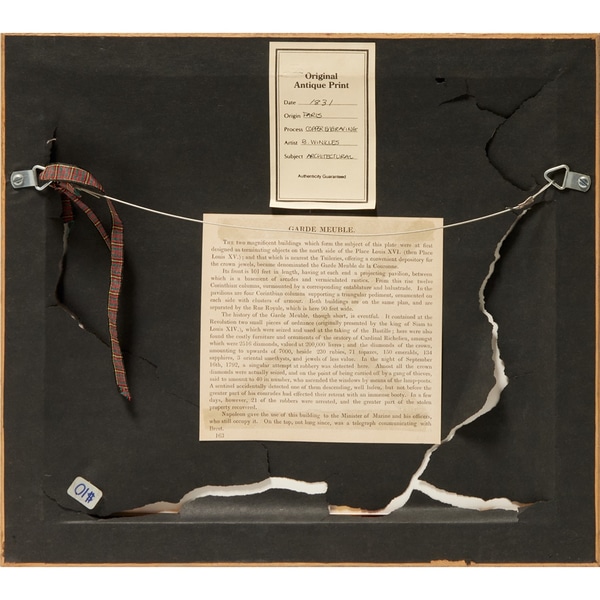 Original
Antique Print
Date 1831
Origin PARIS
Process COPPER ENGRAVING
Artist B. WINKLES
Subject ARCHITECTURAL
Authenticity Guaranteed
GARDE MEUBLE.
THE two magnificent buildings which form the subject of this plate were at first
designed as terminating objects on the north side of the Place Louis XVI. (then Place
Louis XV.); and that which is nearest the Tuileries, offering a convenient depository for
the crown jewels, became denominated the Garde Meuble de la Couronne.
Its front is 101 feet in length, having at each end a projecting pavilion, between
which is a basement of arcades and vermiculated rustics. From this rise twelve
Corinthian columns, surmounted by a corresponding entablature and balustrade. In the
pavilions are four Corinthian columns supporting a triangular pediment, ornamented on
each side with clusters of armour. Both buildings are on the same plan, and are
separated by the Rue Royale, which is here 90 feet wide.
The history of the Garde Meuble, though short, is eventful. It contained at the
Revolution two small pieces of ordnance (originally presented by the king of Siam to
Louis XIV.), which were seized and used at the taking of the Bastille; here were also
found the costly furniture and ornaments of the oratory of Cardinal Richelieu, amongst
which were 2516 diamonds, valued at 200,000 livres; and the diamonds of the crown,
amounting to upwards of 7000, beside 230 rubies, 71 topazes, 150 emeralds, 134
sapphires, 3 oriental amethysts, and jewels of less value. In the night of September
16th, 1792, a singular attempt at robbery was detected here. Almost all the crown
diamonds were actually seized, and on the point of being carried off by a gang of thieves,
said to amount to 40 in number, who ascended the windows by means of the lamp-posts.
A sentinel accidentally detected one of them descending, well laden, but not before the
greater part of his comrades had effected their retreat with an immense booty. In a few
days, however, 21 of the robbers were arrested, and the greater part of the stolen
property recovered.
Napoleon gave the use of this building to the Minister of Marine and his offices,
who still occupy it. On the top, not long since, was a telegraph communicating with
Brest.
163
#10